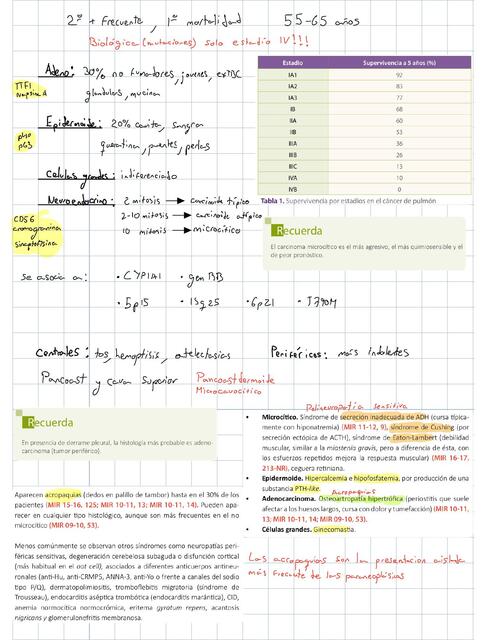 2º + frecuente, 1º mortalidad 55-65 años
Biológica (mutaciones) solo estadio IV!!!
Adeno: 30% no fumadores, jóvenes, exTBC
TTF1
Napsina A
glándulas, mucina
Epidermoide: 20% cavita, sangra
p40
p63
queratina, puentes, perlas
Células grandes: indiferenciado
Neuroendocrino: 2 mitosis → carcinoide típico
CD56
cromogranina
sinaptofisina
2-10 mitosis → carcinoide atípico
10 mitosis → microcítico
Estadio Supervivencia a 5 años (%)
IA1 92
IA2 83
IA3 77
IB 68
IIA 60
IIB 53
IIIA 36
IIIB 26
IIIC 13
IVA 10
IVB 0
Tabla 1. Supervivencia por estadios en el cáncer de pulmón
Recuerda
El carcinoma microcítico es el más agresivo, el más quimiosensible y el
de peor pronóstico.
se asocia a:
• CYP1A1 • gen
• 5p15 • 15q25 • 6p21 • T790M
Centrales: tos, hemoptisis, atelectasias
Periféricos: más indolentes
Pancoast y cava superior
Pancoast
Recuerda
En presencia de derrame pleural, la histología más probable es adeno-
carcinoma (tumor periférico).
Aparecen acropaquias (dedos en palillo de tambor) hasta en el 30% de los
pacientes (MIR 15-16, 125; MIR 10-11, 13; MIR 10-11, 14). Pueden apa-
recer en cualquier tipo histológico, aunque son más frecuentes en el no
microcítico (MIR 09-10, 53).
Menos comúnmente se observan otros síndromes como neuropatías peri-
féricas sensitivas, degeneración cerebelosa subaguda o disfunción cortical
(más habitual en el oat cell), asociados a diferentes anticuerpos antineu-
ronales (anti-Hu, anti-CRMP5, ANNA-3, anti-Yo o frente a canales del sodio
tipo P/Q), dermatopolimiositis, tromboflebitis migratoria (síndrome de
Trousseau), endocarditis aséptica trombótica (endocarditis marántica), CID,
anemia normocítica normocrómica, eritema gyratum repens, acantosis
nigricans y glomerulonefritis membranosa.
Polineuropatía sensitiva
• Microcítico. Síndrome de secreción inadecuada de ADH (cursa típica-
mente con hiponatremia) (MIR 11-12, 9), síndrome de Cushing (por
secreción ectópica de ACTH), síndrome de Eaton-Lambert (debilidad
muscular, similar a la miastenia gravis, pero a diferencia de ésta, con
los esfuerzos repetidos mejora la respuesta muscular) (MIR 16-17,
213-NR), ceguera retiniana.
• Epidermoide. Hipercalcemia e hipofosfatemia, por producción de una
sustancia PTH-like.
Acropaquias
• Adenocarcinoma. Osteoartropatía hipertrófica (periostitis que suele
afectar a los huesos largos, cursa con dolor y tumefacción) (MIR 10-11,
13; MIR 10-11, 14; MIR 09-10, 53).
• Células grandes. Ginecomastia.
Las acropaquias son la presentación aislada
más frecuente de los paraneoplásicos